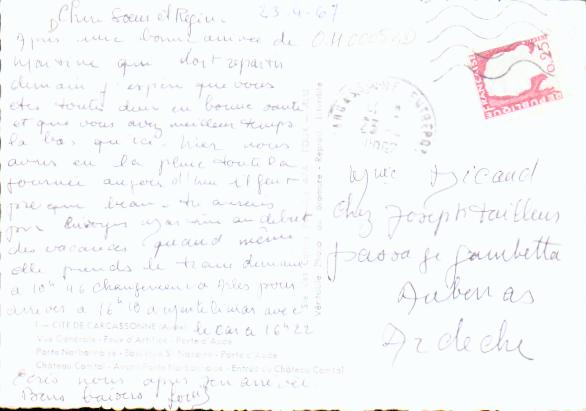 Chère Soeur et Régine
23-4-67
Après une bonne arrivée de
Martine qui doit repartir
demain j'espère que vous
êtes toutes deux en bonne santé
et que vous avez meilleur temps
là bas qu'ici. hier nous
avons eu la pluie toute la
journée aujourd'hui il fait
presque beau. tu aurais
pu envoyer Martine au début
des vacances quand même
elle prends le train demain
à 10h 46 changement à Arles pour
arriver à 16h 10 à Montélimar avec
le car à 16h 22
1 - CITÉ DE CARCASSONNE (Aude)
Vue Générale - Feux d'Artifice - Porte d'Aude
Porte Narbonnaise - Basilique St-Nazaire - Porte d'Aude
Château Comtal - Avant-Porte Narbonnaise - Entrée du Château Comtal
Ecris nous après son arrivée.
Bons baisers
Véritable Photo au Bromure - Reprod. interdite
0,25
REPUBLIQUE FRANÇAISE
Mme Dicaud
Chez Joseph Tailleus
passage gambetta
Aubenas
Ardèche